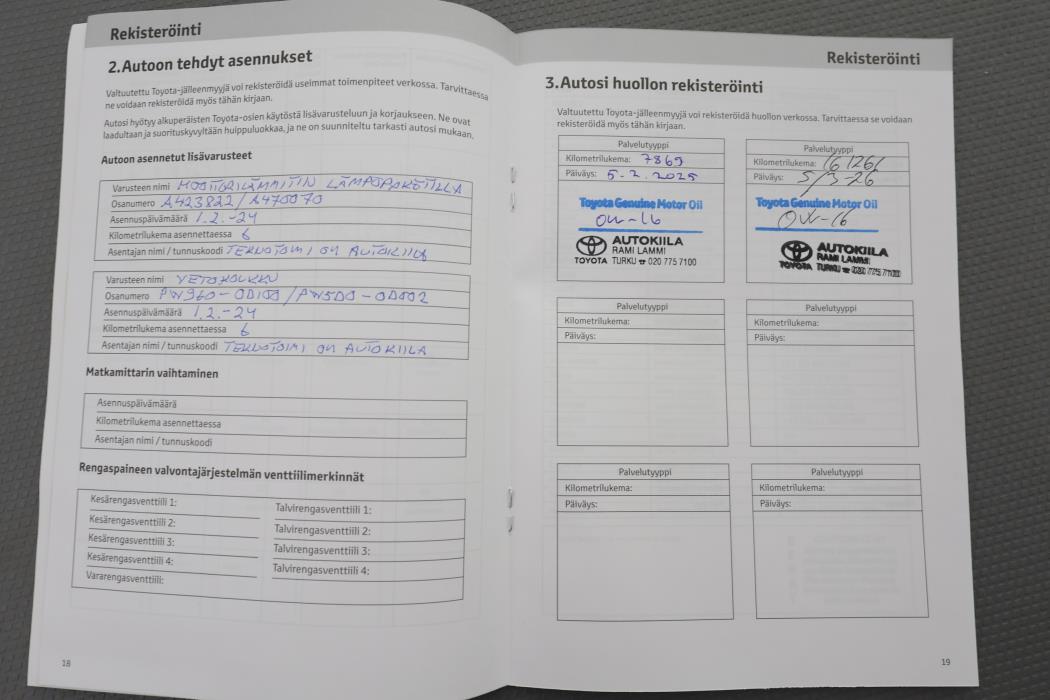 Rekisteröinti
2.Autoon tehdyt asennukset
Valtuutettu Toyota-jälleenmyyjä voi rekisteröidä useimmat toimenpiteet verkossa. Tarvittaessa
ne voidaan rekisteröidä myös tähän kirjaan.
Autosi hyötyy alkuperäisten Toyota-osien käytöstä lisävarusteluun ja korjaukseen. Ne ovat
laadultaan ja suorituskyvyltään huippuluokkaa, ja ne on suunniteltu tarkasti autosi mukaan.
Autoon asennetut lisävarusteet
Varusteen nimi MOOTTORILÄMMITIN LÄMPÖPAKETILLA
Osanumero A423822/A470070
Asennuspäivämäärä 1.2.-24
Kilometrilukema asennettaessa 6
Asentajan nimi / tunnuskoodi TEKNOTOIMI OY AUTOKIILA
Varusteen nimi VETOKOUKKU
Osanumero PW960-0D100/PW5D0-0D002
Asennuspäivämäärä 1.2.-24
Kilometrilukema asennettaessa 6
Asentajan nimi / tunnuskoodi TEKNOTOIMI OY AUTOKIILA
Matkamittarin vaihtaminen
Asennuspäivämäärä
Kilometrilukema asennettaessa
Asentajan nimi / tunnuskoodi
Rengaspaineen valvontajärjestelmän venttiilimerkinnät
Kesärengasventtiili 1:
Kesärengasventtiili 2:
Kesärengasventtiili 3:
Kesärengasventtiili 4:
Vararengasventtiili:
Talvirengasventtiili 1:
Talvirengasventtiili 2:
Talvirengasventtiili 3:
Talvirengasventtiili 4:
18
Rekisteröinti
3.Autosi huollon rekisteröinti
Valtuutettu Toyota-jälleenmyyjä voi rekisteröidä huollon verkossa. Tarvittaessa se voidaan
rekisteröidä myös tähän kirjaan.
Palvelutyyppi
Kilometrilukema: 7869
Päiväys: 5.2.2025
Toyota Genuine Motor Oil
0W-16
AUTOKIILA
RAMI LAMMI
TOYOTA TURKU ☎ 020 775 7100
Palvelutyyppi
Kilometrilukema: 16126
Päiväys: 5/3-26
Toyota Genuine Motor Oil
0W-16
AUTOKIILA
RAMI LAMMI
TOYOTA TURKU ☎ 020 775 7100
Palvelutyyppi
Kilometrilukema:
Päiväys:
Palvelutyyppi
Kilometrilukema:
Päiväys:
Palvelutyyppi
Kilometrilukema:
Päiväys:
Palvelutyyppi
Kilometrilukema:
Päiväys:
19